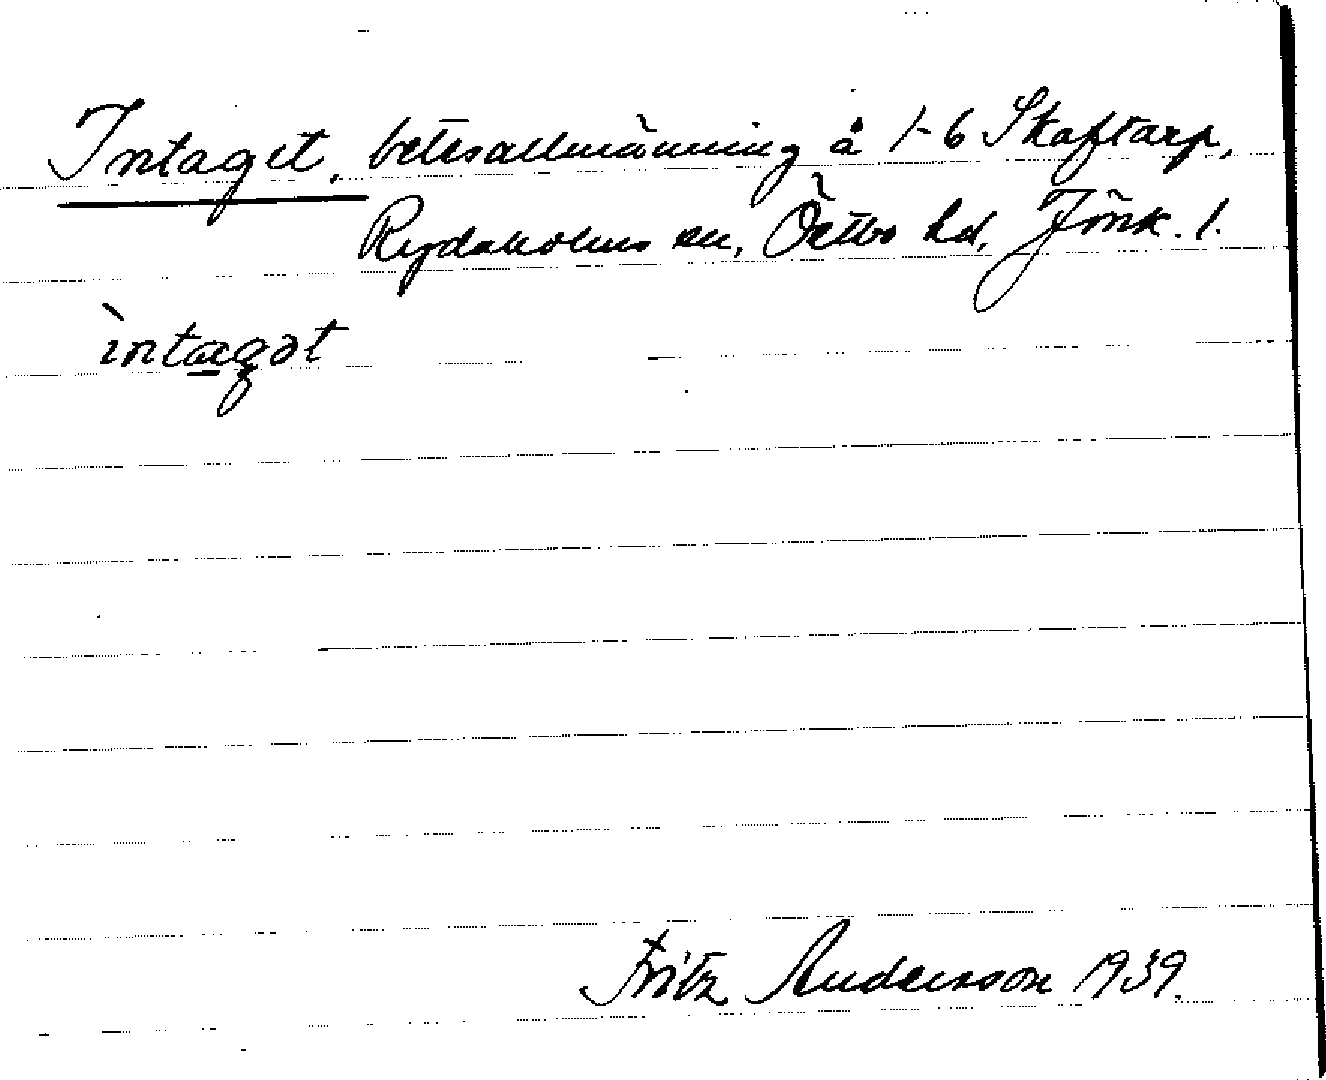 Intaget, betesallmänning å 1-6 Skaftarp,
Rydaholms sn, Östbo hd, Jönk. l.
ìntagət
Fritz Andersson 1939.